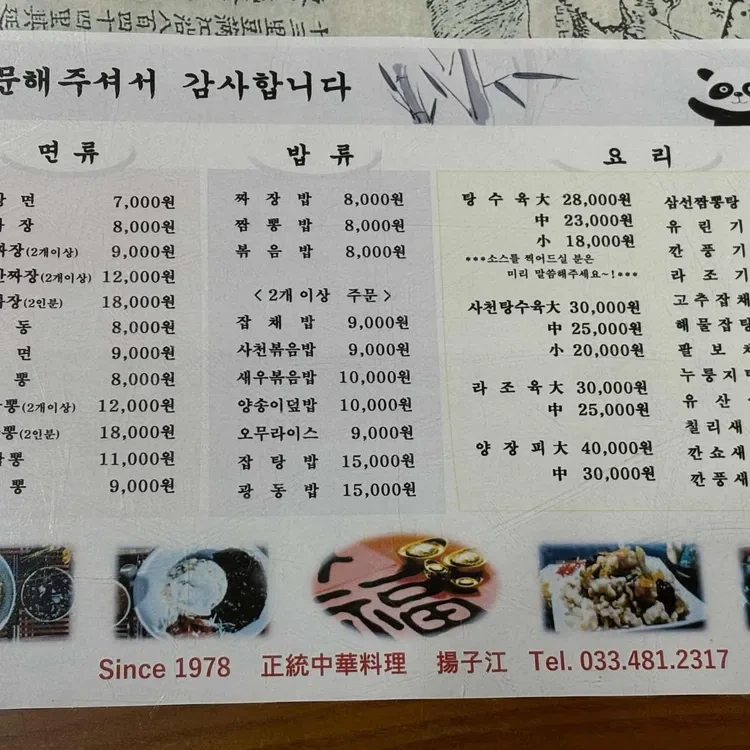 十三里豆滿江沿八百四十四里與延
문해주셔서 감사합니다
면 류
면 7,000원
장 8,000원
짜장(2개이상) 9,000원
짜장(2개이상) 12,000원
짜장(2인분) 18,000원
동 8,000원
면 9,000원
뽕 8,000원
뽕(2개이상) 12,000원
뽕(2인분) 18,000원
뽕 11,000원
뽕 9,000원
밥 류
짜 장 밥 8,000원
짬 뽕 밥 8,000원
볶 음 밥 8,000원
< 2개 이상 주문 >
잡 채 밥 9,000원
사천볶음밥 9,000원
새우볶음밥 10,000원
양송이덮밥 10,000원
오무라이스 9,000원
잡 탕 밥 15,000원
광 동 밥 15,000원
요 리
탕 수 육 大 28,000원
中 23,000원
小 18,000원
***소스를 찍어드실 분은
미리 말씀해주세요~!***
사천탕수육大 30,000원
中 25,000원
小 20,000원
라 조 육 大 30,000원
中 25,000원
양 장 피 大 40,000원
中 30,000원
삼선짬뽕탕
유 린 기
깐 풍 기
라 조 기
고추잡채
해물잡탕
팔 보 채
누룽지
유 산
칠리새
깐쇼새
깐풍새
Since 1978 正統中華料理 揚子江 Tel. 033.481.2317